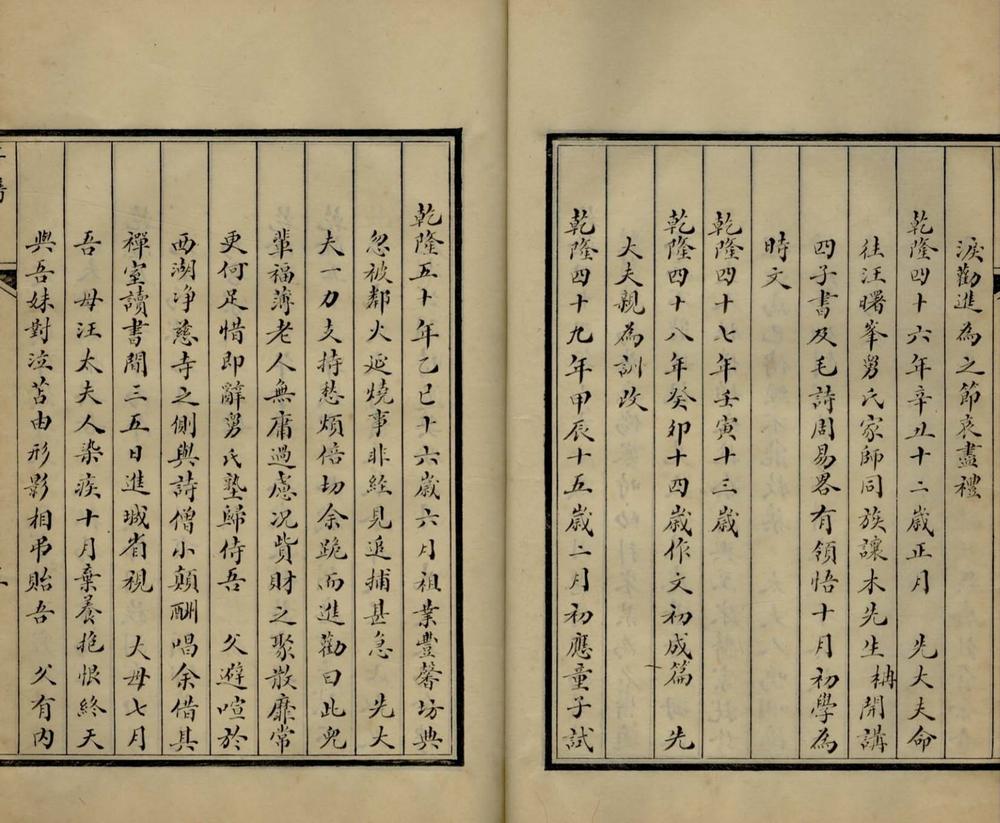 淚勸進為之節哀盡禮
乾隆四十六年辛丑十二歲正月　先大夫命
往汪曙峯舅氏家師同族讓木先生栴開講
四子書及毛詩周易畧有領悟十月初學為
時文
乾隆四十七年壬寅十三歲
乾隆四十八年癸卯十四歲作文初成篇　先
大夫親為訓改
乾隆四十九年甲辰十五歲二月初應童子試
乾隆五十年乙巳十六歲六月祖業豐馨坊典
忽被鄰火延燒事非經見追捕甚急　先大
夫一力支持愁煩倍切余跪而進勸曰此兒
輩福薄老人無庸過慮况貲財之聚散靡常
更何足惜即辭舅氏塾歸侍吾　父避喧於
西湖净慈寺之側與詩僧小顛酬唱余借其
禪室讀書間三五日進城省視　大母七月
吾　母汪太夫人染疾十月棄養抱恨終天
與吾妹對泣苫由形影相弔貽吾　父有内